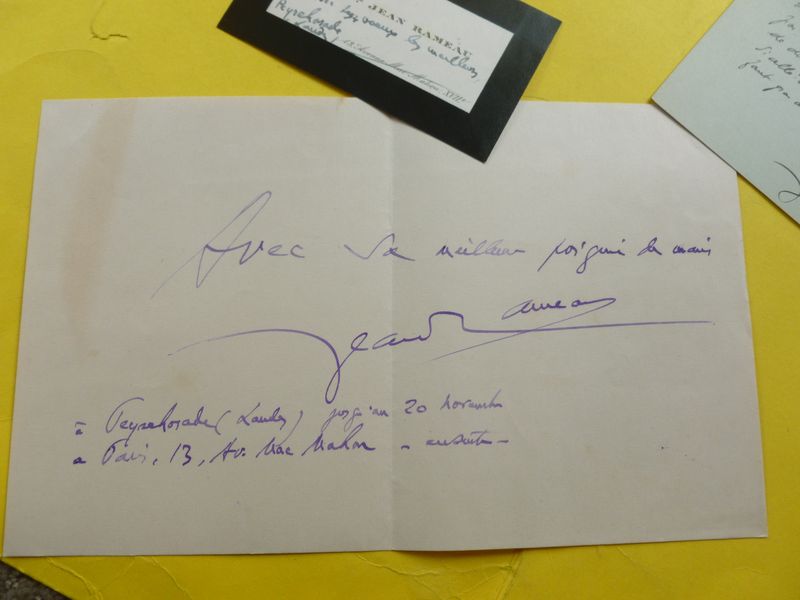 JEAN RAMEAU
les meilleurs
Peyrehorade
Landes
XVIIe
Avec sa meilleure poignée de mains
Jean Rameau
à Peyrehorade (Landes) jusqu'au 20 novembre
à Paris, 13, Av. Mac Mahon - ensuite -